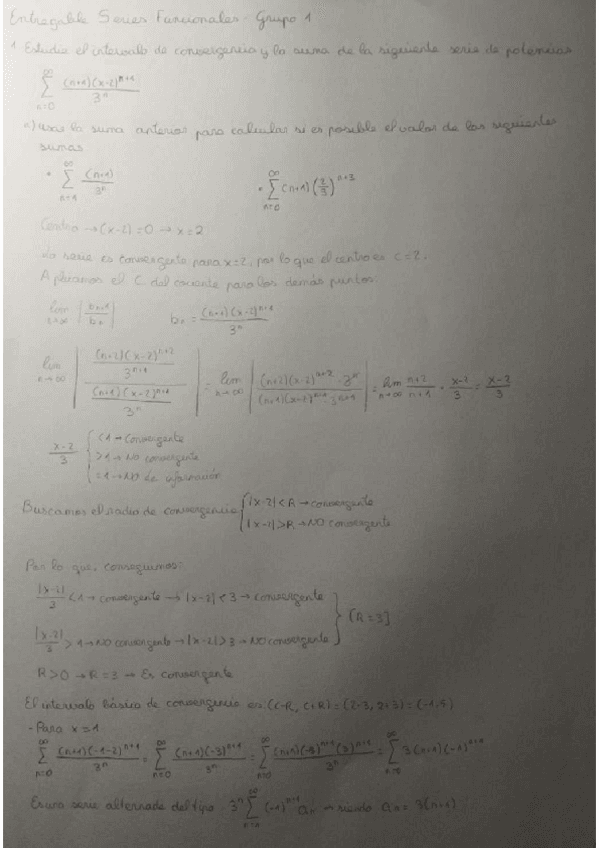 Entregable Series Funcionales - Grupo 1
1 Estudia el intervalo de convergencia y la suma de la siguiente serie de potencias
∑_{n=0}^{∞} (n+1)(x-2)^{n+1} / 3^n
a) usar la suma anterior para calcular si es posible el valor de las siguientes
sumas
• ∑_{n=1}^{∞} (n+1) / 3^n • ∑_{n=0}^{∞} (n+1) (2/3)^{n+3}
Centro → (x-2) = 0 → x = 2
La serie es convergente para x=2, por lo que el centro es c = 2.
Aplicamos el C. del cociente para los demás puntos:
lim | b_{n+1} / b_n | b_n = (n+1)(x-2)^{n+1} / 3^n
lim_{n→∞} | ((n+2)(x-2)^{n+2} / 3^{n+1}) / ((n+1)(x-2)^{n+1} / 3^n) | = lim_{n→∞} | (n+2)(x-2)^{n+2} · 3^n / (n+1)(x-2)^{n+1} · 3^{n+1} | = lim_{n→∞} n+2 / n+1 · x-2 / 3 = x-2 / 3
x-2 / 3 { <1 → Convergente
>1 → No convergente
=1 → No da información
Buscamos el radio de convergencia { |x-2| < R → convergente
|x-2| > R → NO convergente
Por lo que, conseguimos:
|x-2| / 3 < 1 → convergente → |x-2| < 3 → convergente
|x-2| / 3 > 1 → NO convergente → |x-2| > 3 → NO convergente } [R=3]
R > 0 → R = 3 → Es convergente
El intervalo básico de convergencia es: (c-R, c+R) = (2-3, 2+3) = (-1,5)
- Para x = 1
∑_{n=0}^{∞} (n+1)(-1-2)^{n+1} / 3^n = ∑_{n=0}^{∞} (n+1)(-3)^{n+1} / 3^n = ∑_{n=0}^{∞} / 3^n = ∑ 3(n+1)(-1)^{n+1}
Es una serie alternada del tipo: ∑ (-1)^{n+1} a_n → siendo a_n = 3(n+1)